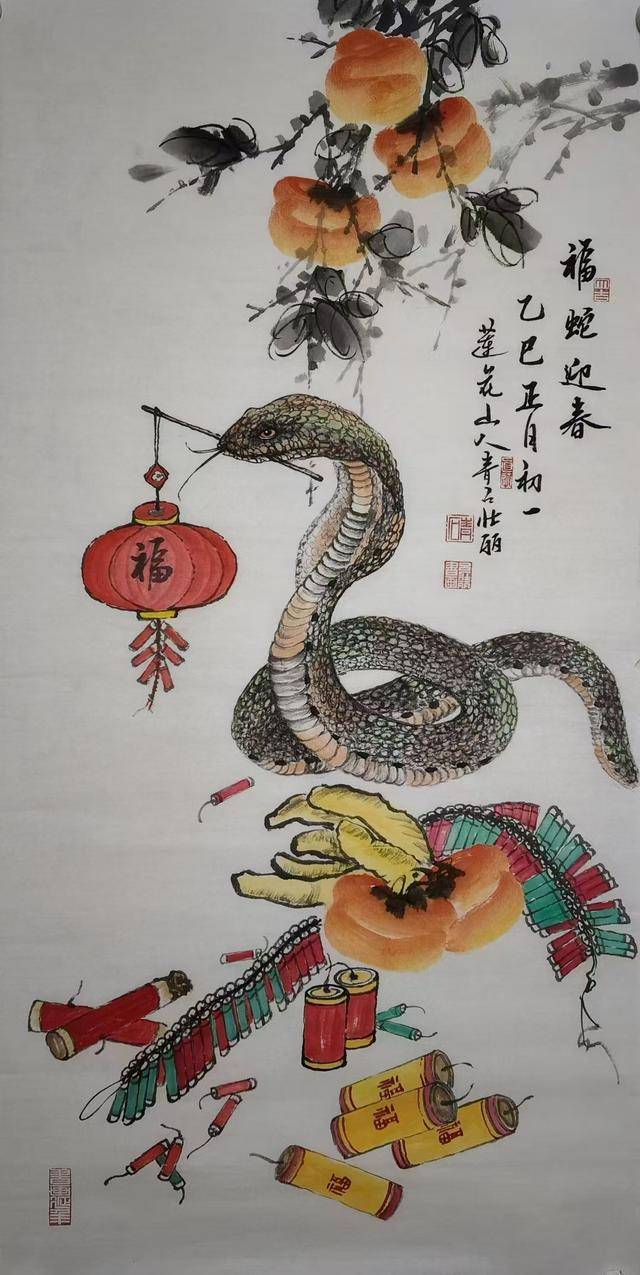 福蛇迎春
乙巳正月初一
莲花山人青石壮丽
福
福
福
福
福